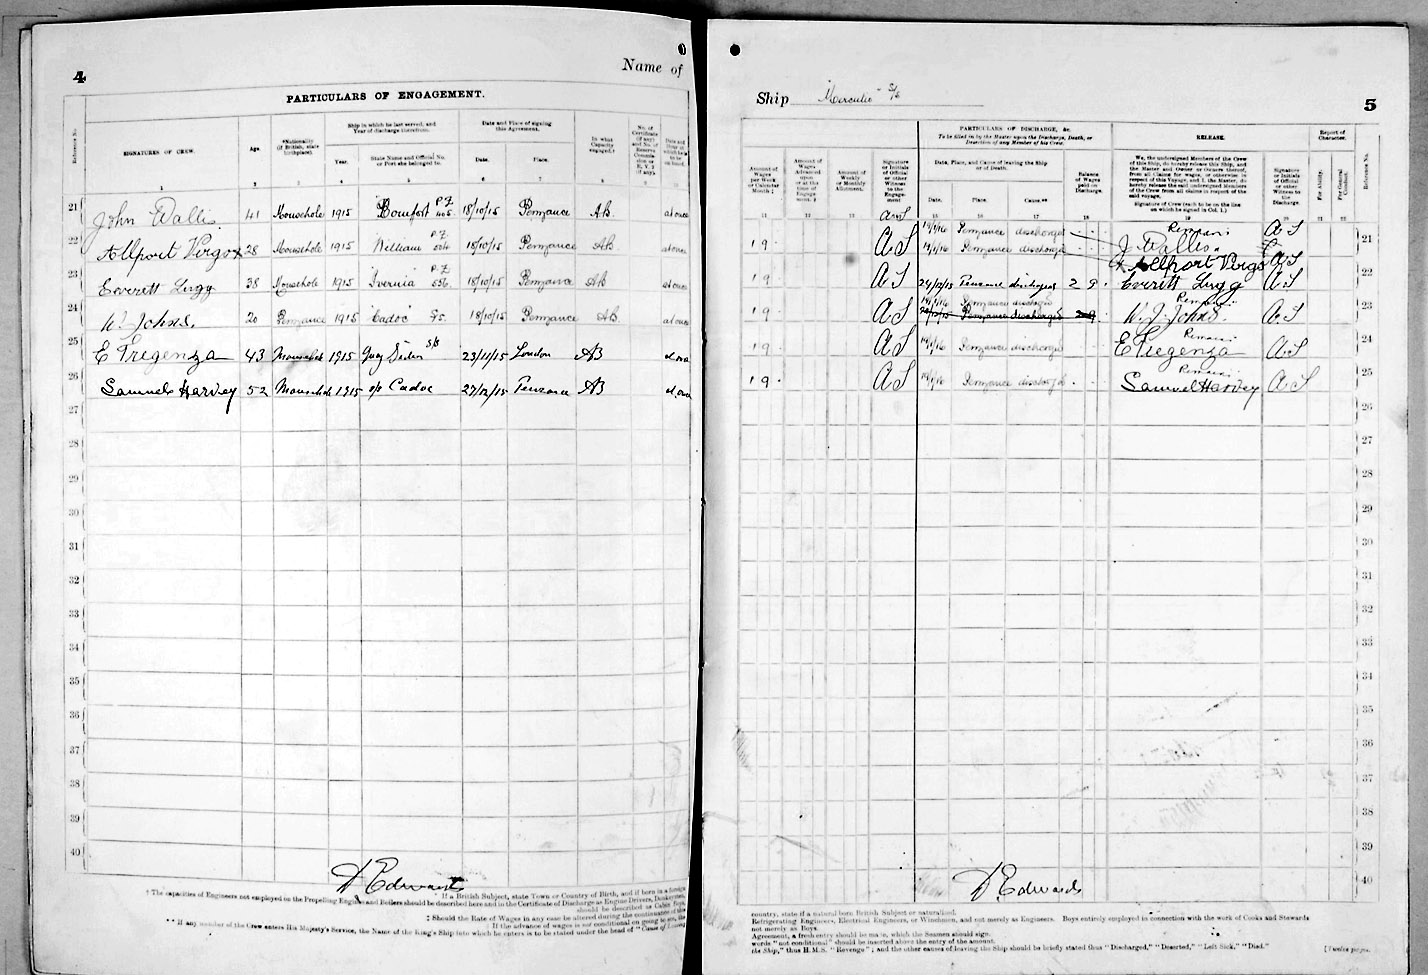 4
Name of
PARTICULARS OF ENGAGEMENT.
Reference No.
SIGNATURES OF CREW.
Age.
*Nationality (If British, state birthplace).
Ship in which he last served, and Year of discharge therefrom.
Year.
State Name and Official No. or Port she belonged to.
Date and Place of signing this Agreement.
Date.
Place.
In what Capacity engaged.†
No. of Certificate (if any) and No. of Reserve Commission or R.V. 2 (if any).
1 2 3 4 5 6 7 8 9 10
21 John Wallis 41 Mousehole 1915 P.Z. 405 18/10/15 Penzance AB. at once
22 Allport Virgo x 28 Mousehole 1915 William P.Z. 18/10/15 Penzance AB. at once
23 Everett Lugg 38 Mousehole 1915 Ivernia P.Z. 18/10/15 Penzance AB at once
24 W. J. Johns. 20 Penzance 1915 Cadoc 18/10/15 Penzance AB. at once
25 E Tregenza 43 Mousehole 1915 S/S 23/11/15 London AB at once
26 Samuel Harvey 52 Mousehole 1915 s/s Cadoc 27/12/15 Penzance AB at once
27
28
29
30
31
32
33
34
35
36
37
38
39
40
D Edwards
† The capacities of Engineers not employed on the Propelling Engines and Boilers should be described here and in the Certificate of Discharge as Engine Drivers, Donkeymen,
* If a British Subject, state Town or Country of Birth, and if born in a foreign
‡ Should the Rate of Wages in any case be altered during the continuance of this
If the advance of wages is not conditional on going to sea, the
** If any member of the Crew enters His Majesty's Service, the Name of the King's Ship into which he enters is to be stated under the head of "Cause of Leaving
Ship Mercutio S/S
5
Amount of Wages per Week or Calendar Month ‡
Amount of Wages Advanced upon or at the time of Engagement. ‡
Amount of Weekly or Monthly Allotment.
Signature or Initials of Official or other Witness to the Engagement
PARTICULARS OF DISCHARGE, &c.
To be filled in by the Master upon the Discharge, Death, or Desertion of any Member of his Crew.
Date, Place, and Cause of leaving the Ship or of Death.
Date.
Place.
Cause.**
Balance of Wages paid on Discharge.
RELEASE.
We, the undersigned Members of the Crew of this Ship, do hereby release this Ship, and the Master and Owner or Owners thereof, from all Claims for wages, or otherwise in respect of this Voyage, and I, the Master, do hereby release the said undersigned Members of the Crew from all claims in respect of the said voyage.
Signature of Crew (each to be on the line on which he signed in Col. 1.)
Signature or Initials of Official or other Witness to the Discharge.
Report of Character.
For Ability.
For General Conduct.
Reference No.
11 12 13 14 15 16 17 18 19 20 21 22
A S Penzance discharged Remain: J. Wallis. A S 21
19 A S Penzance discharged x Allport Virgo A S 22
19 A S 24/12/15 Penzance discharged 2 9 Everett Lugg A S
19 A S Penzance discharged Remain: W. J. Johns. A S 23
19 A S Penzance discharged Remain: E Tregenza A S 24
19 A S Penzance discharged Remain: Samuel Harvey A S 25
26
27
28
29
30
31
32
33
34
35
36
37
38
39
40
D. Edwards
country, state if a natural born British Subject or naturalized.
Refrigerating Engineers, Electrical Engineers, or Winchmen, and not merely as Engineers. Boys entirely employed in connection with the work of Cooks and Stewards
not merely as Boys.
Agreement, a fresh entry should be made, which the Seamen should sign.
words "not conditional" should be inserted above the entry of the amount.
the Ship," thus H.M.S. "Revenge"; and the other causes of leaving the Ship should be briefly stated thus "Discharged," "Deserted," "Left Sick," "Died."
[Twelve pages.